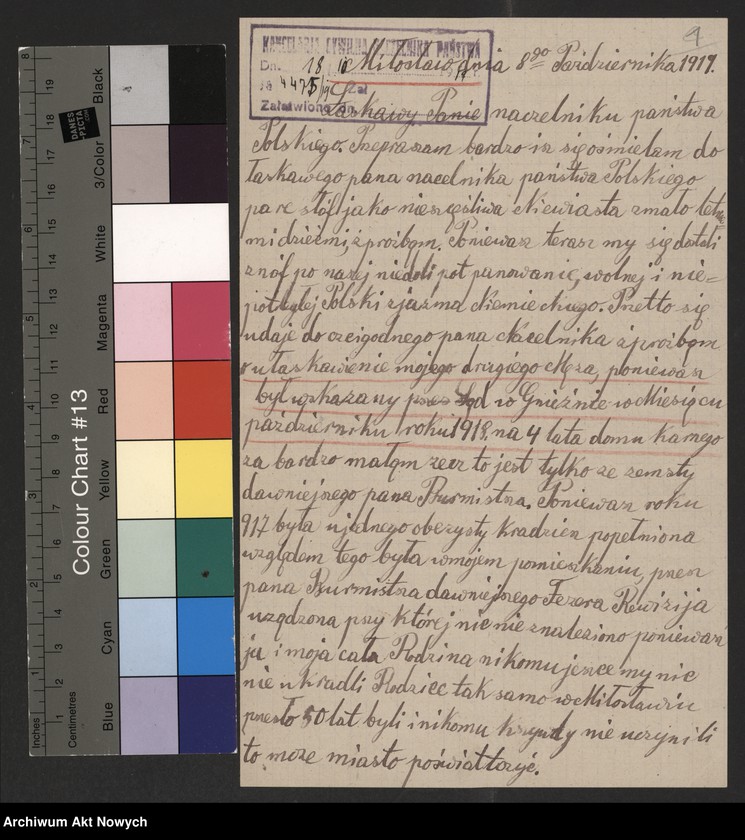 4
KANCELARJA CYWILNA NACZELNIKA PAŃSTWA
Dn. 18 10 19
№ 4475/19 Zał
Załatwiono dn.
Miłosław dnia 8go Pazdziernika 1919.
Łaskawy Panie naczelniku państwa
Polskiego. Przepraszam bardzo iz się ośmielam do
łaskawego pana nacelnika państwa Polskiego
pare słóf jako niesczęśliwa Niewiasta zmało
mi dziećmi, z prozbom. Poniewasz terasz my się dostali
znóf po naszej niedoli pot panowanie, wolnej i nie=
potległej Polski zjażma Niemieckiego. Pretto się
udaje do czcigodnego pana Nacelnika z prozbom
o ułaskawienie mojego drogiego Męza, poniewasz
był wskazany przes Sąd w Gnieźnie w Miesiącu
październiku roku 1918 na 4 lata domu karnego
za bardzo małom zecz to jest tylko ze zemsty
dawniejsnego pana Burmistrza. Poniewasz roku
917 była u jednego oberzysty kradzież popełniona
względem tego była wmojem pomieszkaniu, przez
pana Burmistrza dawniejsnego Fezera Rewizija
uządzona pszy której nic nie znaleziono poniewasz
ja i moja cała Rodzina nikomu jesce my nic
nie ukradli Rodzice tak samo w Miłosławiu
presło 50 lat byli i nikomu krzywdy nie uczynili
to może miasto poświattczyć.
Colour Chart #13
Blue
Cyan
Green
Yellow
Red
Magenta
White
3/Color
Black
Inches
Centimetres
DANES
-PICTA
.COM
Archiwum Akt Nowych